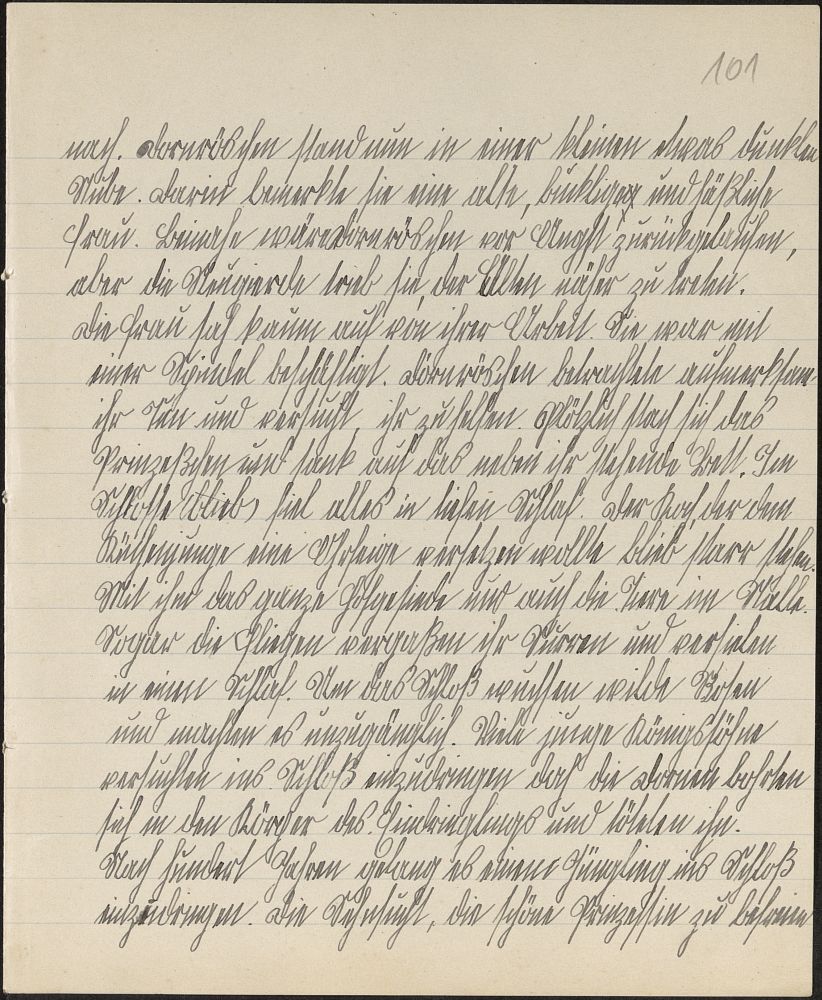 101
nach. Dornröschen stand nun in einer kleinen etwas dunklen
Stube. Darin bemerkte sie eine alte, bucklige und häßliche
Frau. Beinahe wäre Dornröschen vor Angst zurückgelaufen,
aber die Neugierde trieb sie, der Alten näher zu treten.
Die Frau sah kaum auf von ihrer Arbeit. Sie war mit
einer Spindel beschäftigt. Dörnröschen betrachtete aufmerksam
ihr Tun und versucht, ihr zu helfen. Plötzlich stach sich das
Prinzeßchen und sank auf das neben ihr stehende Bett. Im
Schlosse (blieb) fiel alles in tiefen Schlaf. Der Koch, der dem
Küchenjunge eine Ohrfeige versetzen wollte blieb starr stehen.
Mit ihm das ganze Hofgesinde und auch die Tiere im Stalle.
Sogar die Fliegen vergaßen ihr Surren und verfielen
in einen Schlaf. Um das Schloß wuchsen wilde Rosen
und machten es unzugänglich. Viele junge Königssöhne
versuchten ins Schloß einzudringen doch die Dornen bohrten
sich in den Körper des Eindringlings und töteten ihn.
Nach hundert Jahren gelang es einem Jüngling ins Schloß
einzudringen. Die Sehnsucht, die schöne Prinzessin zu befreien